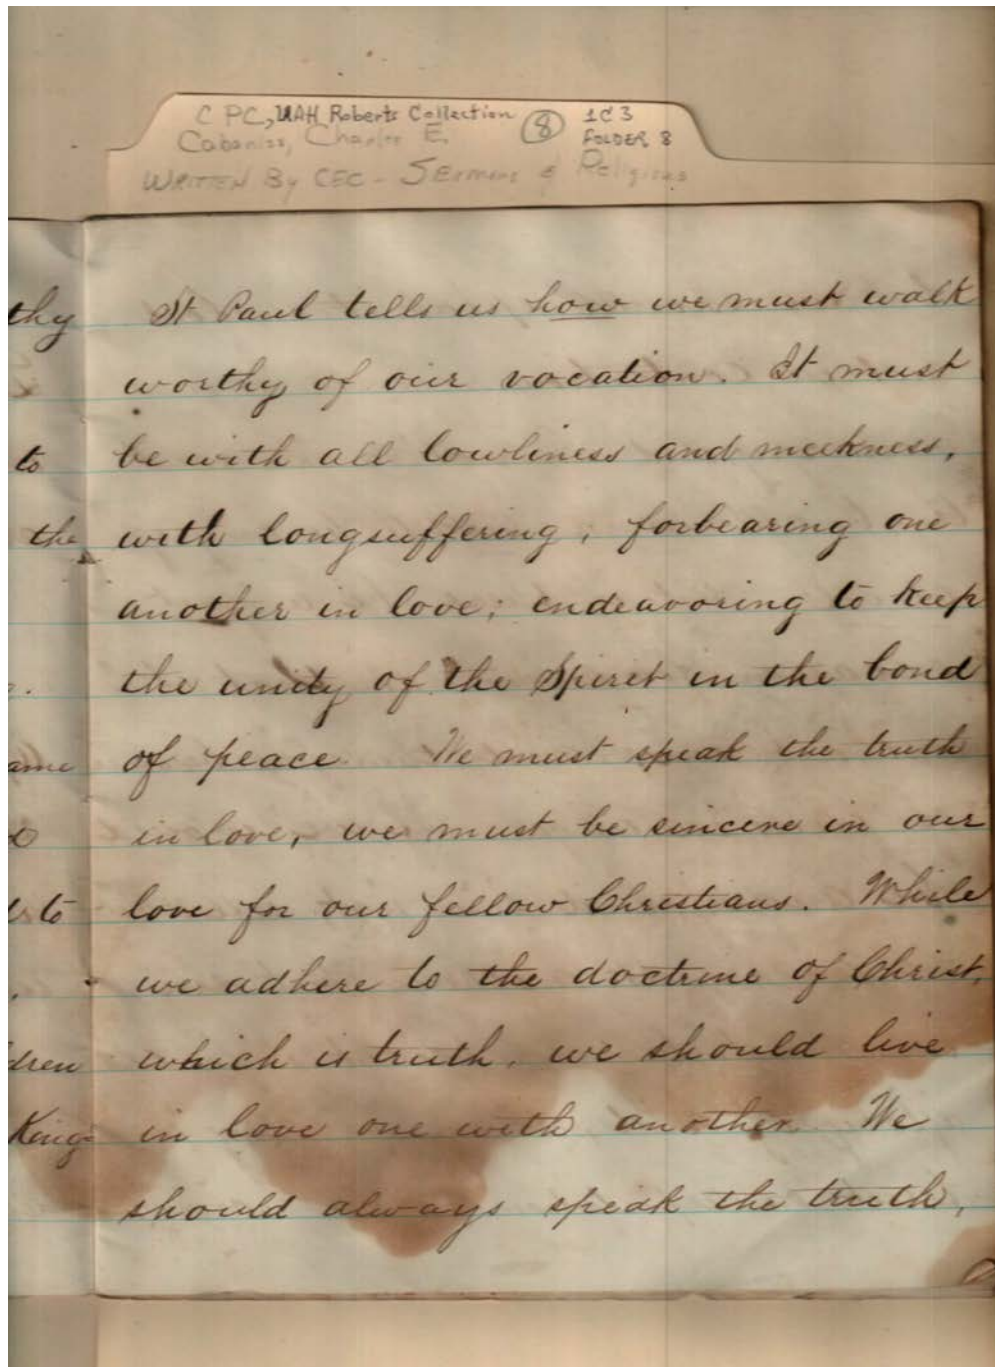 C PC, UAH Roberts Collection 8 1C3
Cabaniss, Charles E. FOLDER 8
WRITTEN By CEC - Sermons & Religious
thy
to
the
ame
to
dren
King
St Paul tells us how we must walk
worthy of our vocation. It must
be with all lowliness and meekness,
with longsuffering, forbearing one
another in love; endeavoring to keep
the unity of the Spirit in the bond
of peace. We must speak the truth
in love, we must be sincere in our
love for our fellow Christians. While
we adhere to the doctrine of Christ,
which is truth, we should live
in love one with another. We
should always speak the truth,